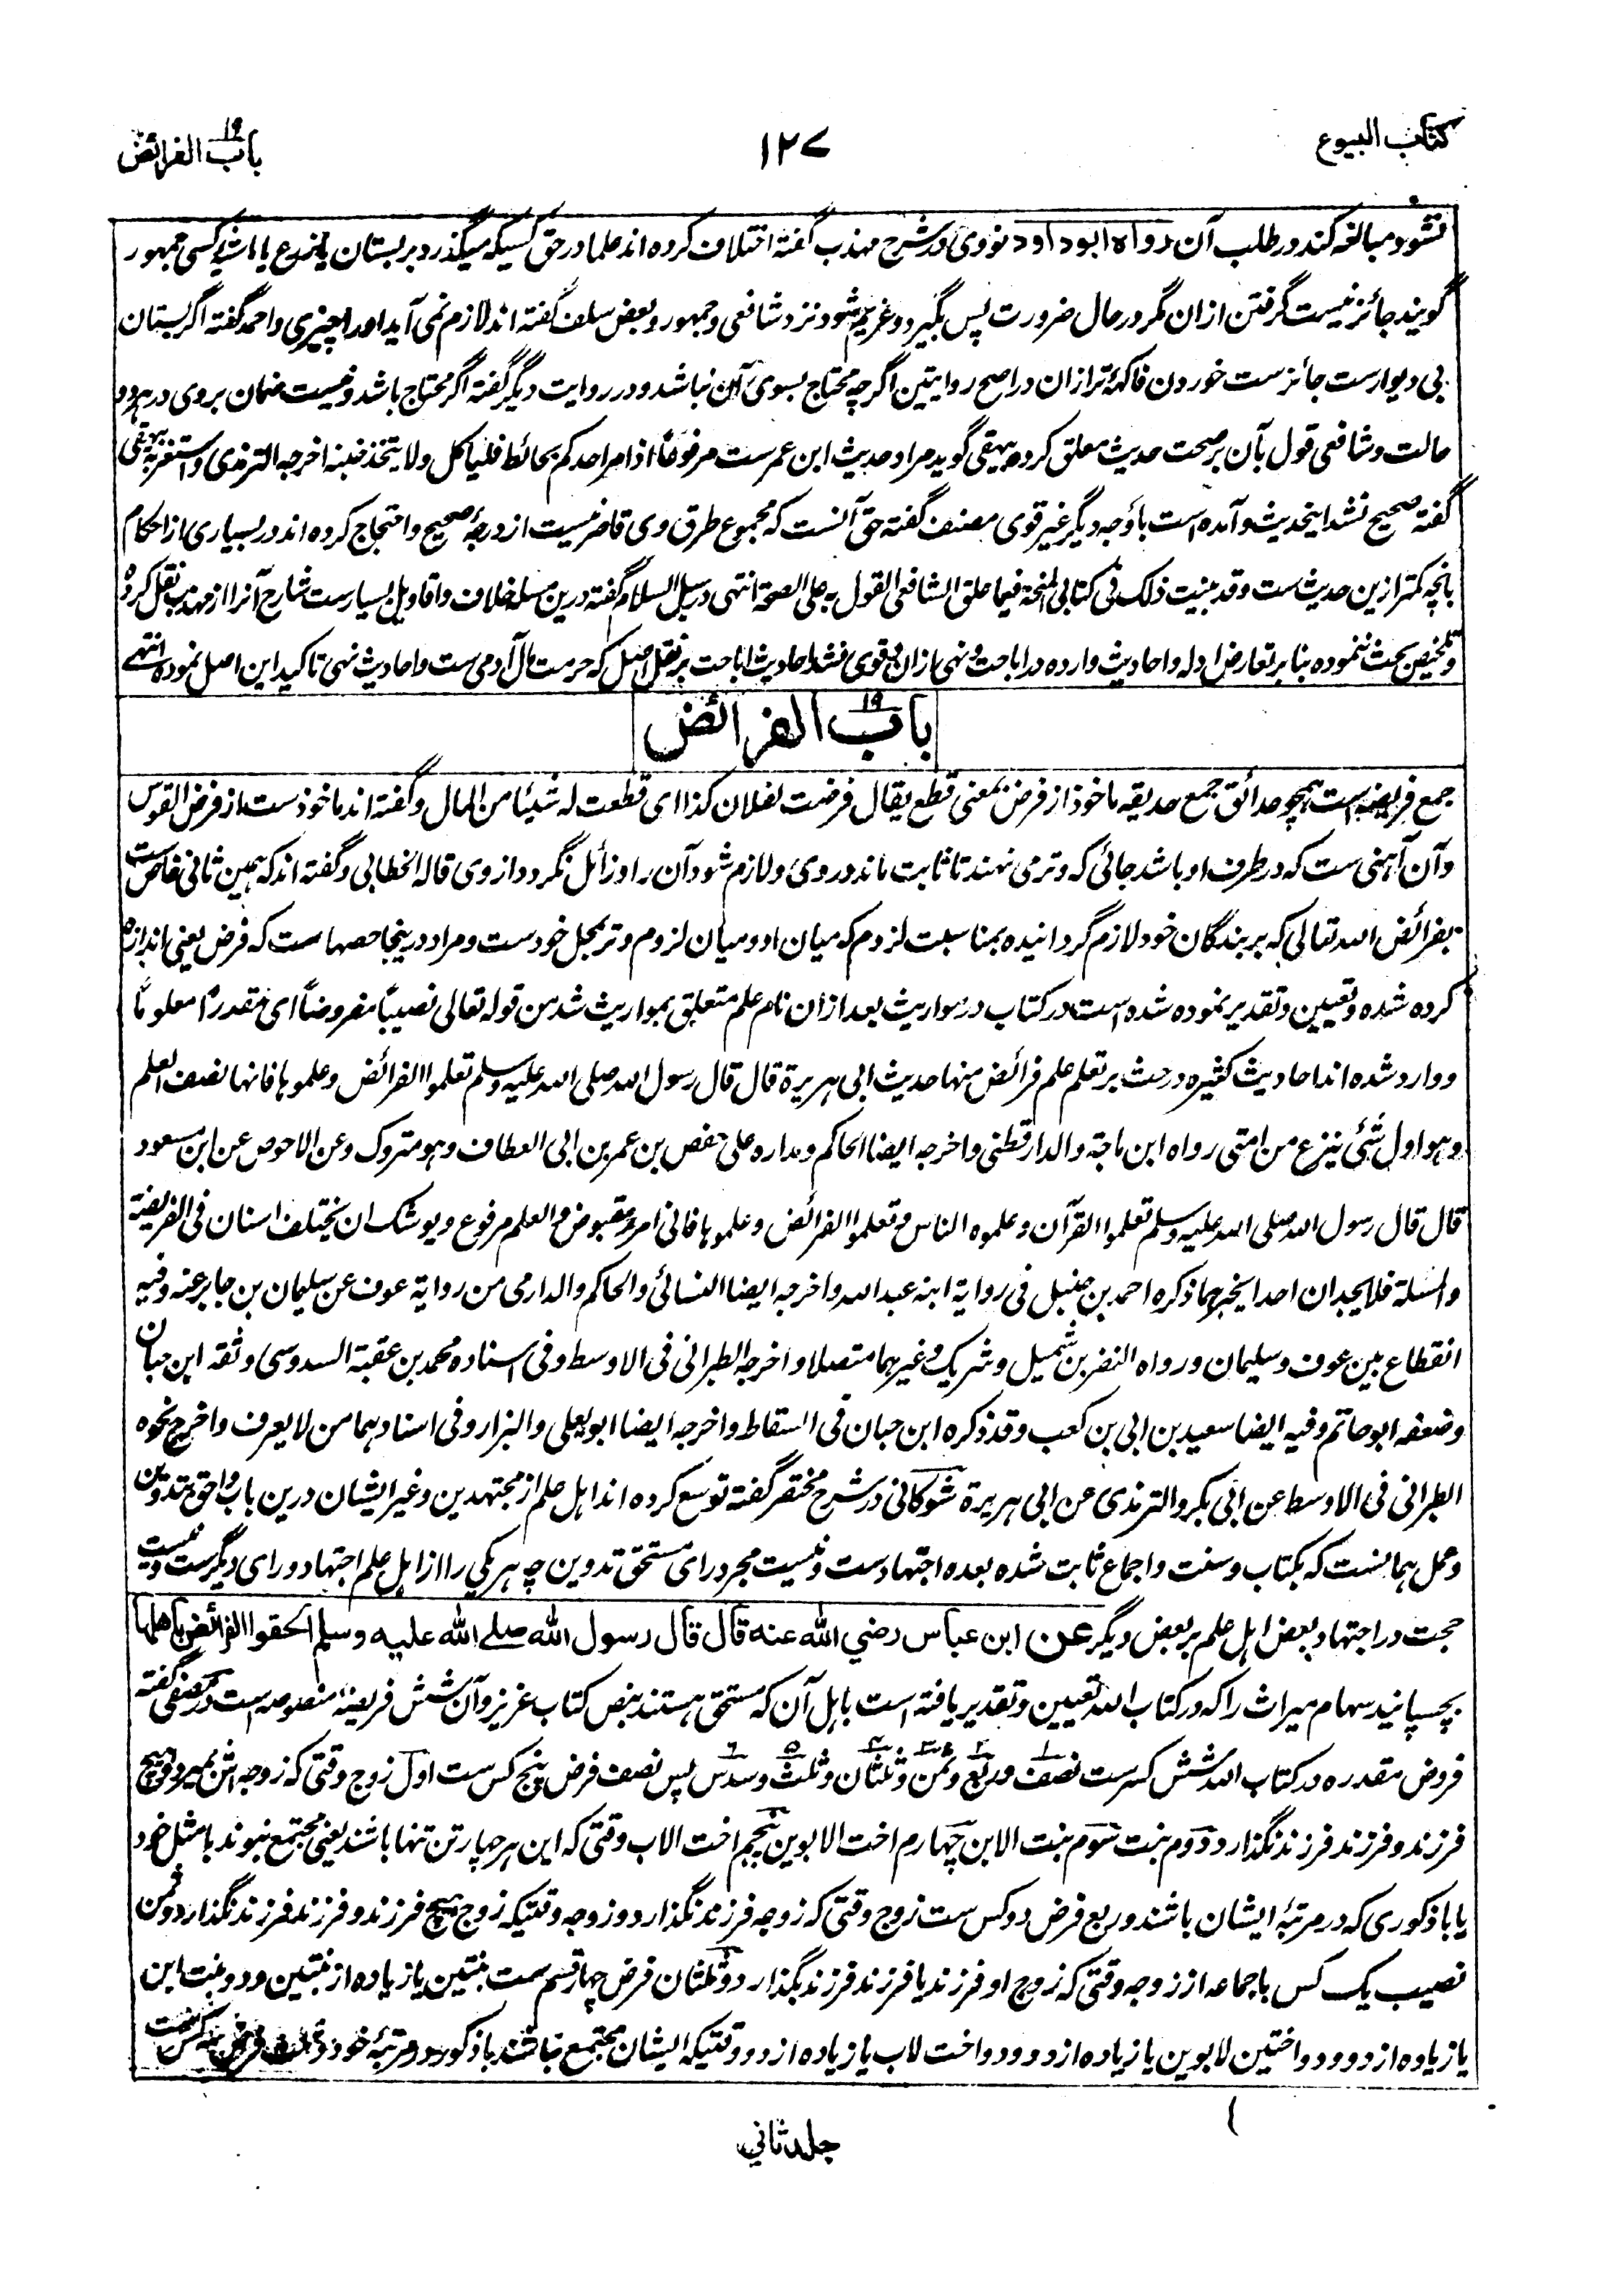 کتاب البیوع
۱۲۷
باب الفرائض ۱۹
نشود مبالغه کند در طلب آن رواه ابو داود نووی در شرح مهذب گفته اختلاف کرده اند علما در حق کسیکه میگذرد بر بستان یا زرع یا ماشیه کسی جمهور
گویند جائز نیست گرفتن ازان مگر در حال ضرورت پس بگیرد و غریم شود نزد شافعی و جمهور و بعض سلف گفته اند لازم نمی آید او را چیزی و احمد گفته اگر بستان
بی دیوارست جائزست خوردن فاکههٔ تر ازان در اصح روایتین اگرچه محتاج بسوی آن نباشد و در روایت دیگر گفته اگر محتاج باشد و نیست ضمان بروی در هر دو
حالت و شافعی قول بآن بر صحت حدیث معلق کرده بیهقی گوید مراد حدیث ابن عمرست مرفوعًا اذا مر احدکم بحائط فلیاکل ولا یتخذ خبنه اخرجه الترمذی و استغربه بیهقی
گفته صحیح نشد اینحدیث و آمده است باوجه دیگر غیر قوی مصنف گفته حق آنست که مجموع طرق وی قاصر نیست از درجهٔ صحیح و احتجاج کرده اند در بسیاری از احکام
بانچه کمتر ازین حدیث ست و قد بینت ذلک فی کتابی المنحة فیما علق الشافعی القول به علی الصحة انتهی در سبل السلام گفته درین مسله خلاف و اقاویل بسیارست شارح آنرا از مهذب نقل کرده
و تلخیص بحث ننموده بنا بر تعارض ادله و احادیث وارده در اباحت و نهی ازان پی قوی نشد احادیث اباحت بر نقل اصل که حرمت مال آدمی ست و احادیث نهی تاکید این اصل نموده انتهے
باب الفرائض ۱۹
جمع فریضه است همچو حدائق جمع حدیقه ماخوذ از فرض بمعنی قطع یقال فرضت لفلان کذا ای قطعت له شیئا من المال و گفته اند ماخوذ ست از فرض القوس
و آن آهنی ست که در طرف او باشد جائی که وتر می نهند تا ثابت ماند در وی و لازم شود آن را و زائل نگردد از وی قاله الخطابی و گفته اند که همین ثانی خاص ست
بفرائض الله تعالی که بر بندگان خود لازم گردانیده بمناسبت لزوم که میان او و میان لزوم وتر بمحل خودست و مراد در ینجا حصهاست که فرض یعنی اندازه
کرده شده و تعیین و تقدیر نموده شده است در کتاب در مواریث بعد ازان نام علم متعلق بمواریث شد من قوله تعالی نصیبًا مفروضًا ای مقدرًا معلومًا
و وارد شده اند احادیث کثیره در حث بر تعلم علم فرائض منها حدیث ابی هریرة قال قال رسول الله صلی الله علیه وسلم تعلموا الفرائض و علموها فانها نصف العلم
و هو اول شئ ینزع من امتی رواه ابن ماجة و الدارقطنی و اخرجه ایضا الحاکم و مداره علی حفص بن عمر بن ابی العطاف و هو متروک و عن الاحوص عن ابن مسعود
قال قال رسول الله صلی الله علیه وسلم تعلموا القرآن و علموه الناس و تعلموا الفرائض و علموها فانی امرؤ مقبوض و العلم مرفوع و یوشک ان یختلف اسنان فی الفریضة
والمسئلة فلا یجدان احدا یخبرهما ذکره احمد بن حنبل فی روایة ابنه عبدالله و اخرجه ایضا النسائی و الحاکم و الدارمی من روایة عوف عن سلیمان بن جابر عنه و فیه
انقطاع بین عوف و سلیمان و رواه النضر بن شمیل و شریک و غیرهما متصلا و اخرجه الطبرانی فی الاوسط و فی اسناده محمد بن عقبة السدوسی وثقه ابن حبان
و ضعفه ابو حاتم و فیه ایضا سعید بن ابی بن کعب و قد ذکره ابن حبان فی الثقاط و اخرجه ایضا ابو یعلی و البزار و فی اسنادهما من لا یعرف و اخرج نحوه
الطبرانی فی الاوسط عن ابی بکر و الترمذی عن ابی هریرة شوکانی در شرح مختصر گفته توسع کرده اند اهل علم از مجتهدین و غیر ایشان درین باب و احق بتدوین
و عمل همانست که بکتاب و سنت و اجماع ثابت شده بعده اجتهادست و نیست مجرد رای مستحق تدوین چه هر یکی را از اهل علم اجتهاد و رای دیگرست و نیست
حجت در اجتهاد بعض اهل علم بر بعض دیگر عن ابن عباس رضي الله عنه قال قال رسول الله صلے الله علیه وسلم الحقوا الفرائض باهلها
بچسپانید سهام میراث را که در کتاب الله تعیین و تقدیر یافته است باهل آن که مستحق هستند بنص کتاب عزیز و آن شش فریضهٔ منصوصه است در مصفی گفته
فروض مقدره در کتاب الله شش کسرست نصف و ربع و ثمن و ثلثان و ثلث و سدس پس نصف فرض پنج کس ست اول زوج وقتی که زوجه اش بمیرد و هیچ
فرزند و فرزند فرزند نگذارد دوم بنت سوم بنت الابن چهارم اخت الابوین پنجم اخت الاب وقتی که این هر چهار تن تنها باشند یعنی مجتمع نبوند با مثل خود
یا با ذکوری که در مرتبهٔ ایشان باشند و ربع فرض دو کس ست زوج وقتی که زوجه فرزند نگذارد و زوجه وقتیکه زوج هیچ فرزند و فرزند فرزند نگذارد و ثمن
نصیب یک کس با جماعه از زوجه وقتی که زوج او فرزند یا فرزند فرزند بگذارد و ثلثان فرض چهار قسم ست بنتین یا زیاده از بنتین و دو بنت ابن
یا زیاده از دو و دو اختین لابوین یا زیاده از دو و دو اخت لاب یا زیاده از دو وقتیکه ایشان مجتمع نباشند با ذکور در مرتبهٔ خود و ثلث فرض سه کس ست
جلد ثاني